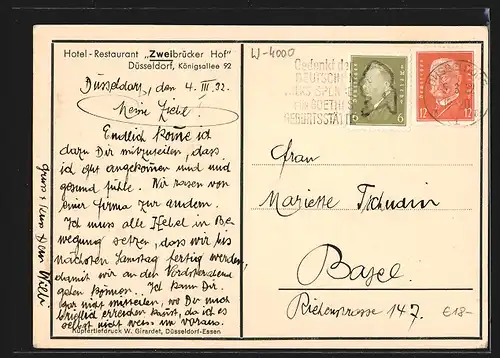 Hotel-Restaurant „Zweibrücker Hof"
Düsseldorf, Königsallee 92
Düsseldorf, den 4. III. 32.
Meine Liebe!
Endlich komme ich
dazu Dir mitzuteilen, dass
ich gut angekommen und mich
gesund fühle. Wir rasen von
einer Firma zur andern.
Ich muss alle Hebel in Be
wegung setzen, dass wir bis
nächsten Samstag fertig werden,
damit wir an den
können. Ich kann Dir
gar nicht mitteilen, wo Du mich
brieflich erreichen kannst, da ich es
selbst nicht weiss im voraus.
Gruss + Kuss Dein Willi
Kupfertiefdruck W. Girardet, Düsseldorf-Essen
LJ-4000
Gedenkt der
DEUTSCHEN
SPEN
FÜR GOETHES
GEBURTSSTÄTTE
6
12 12
Frau
Mariette Tschudin
Basel.
Riehenstrasse 147.
€18-